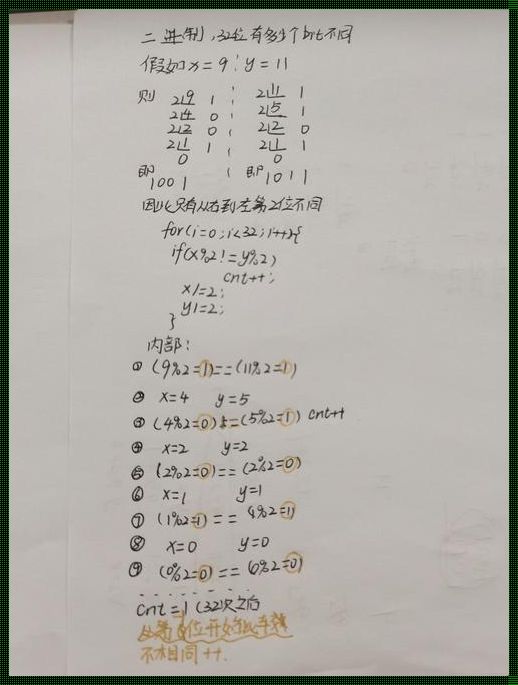 二进制,32位有多少个bit不同
假如x=9 ; y=11
则 2|9 1 ; 2|11 1
2|4 0 ; 2|5 1
2|2 0 ; 2|2 0
2|1 1 ; 2|1 1
0 0
即1001 ; 即1011
因此只有从右到左第2位不同
for(i=0;i<32;i++){
if(x%2!=y%2)
cnt++;
x/=2;
y/=2;
}
内部:
① (9%2=1)==(11%2=1)
② x=4 y=5
③ (4%2=0)!=(5%2=1) cnt++
④ x=2 y=2
⑤ (2%2=0)==(2%2=0)
⑥ x=1 y=1
⑦ (1%2=1)== (1%2=1)
⑧ x=0 y=0
⑨ (0%2=0)==(0%2=0)
cnt=1 (32次之后
从第 位开始比
不相同++.